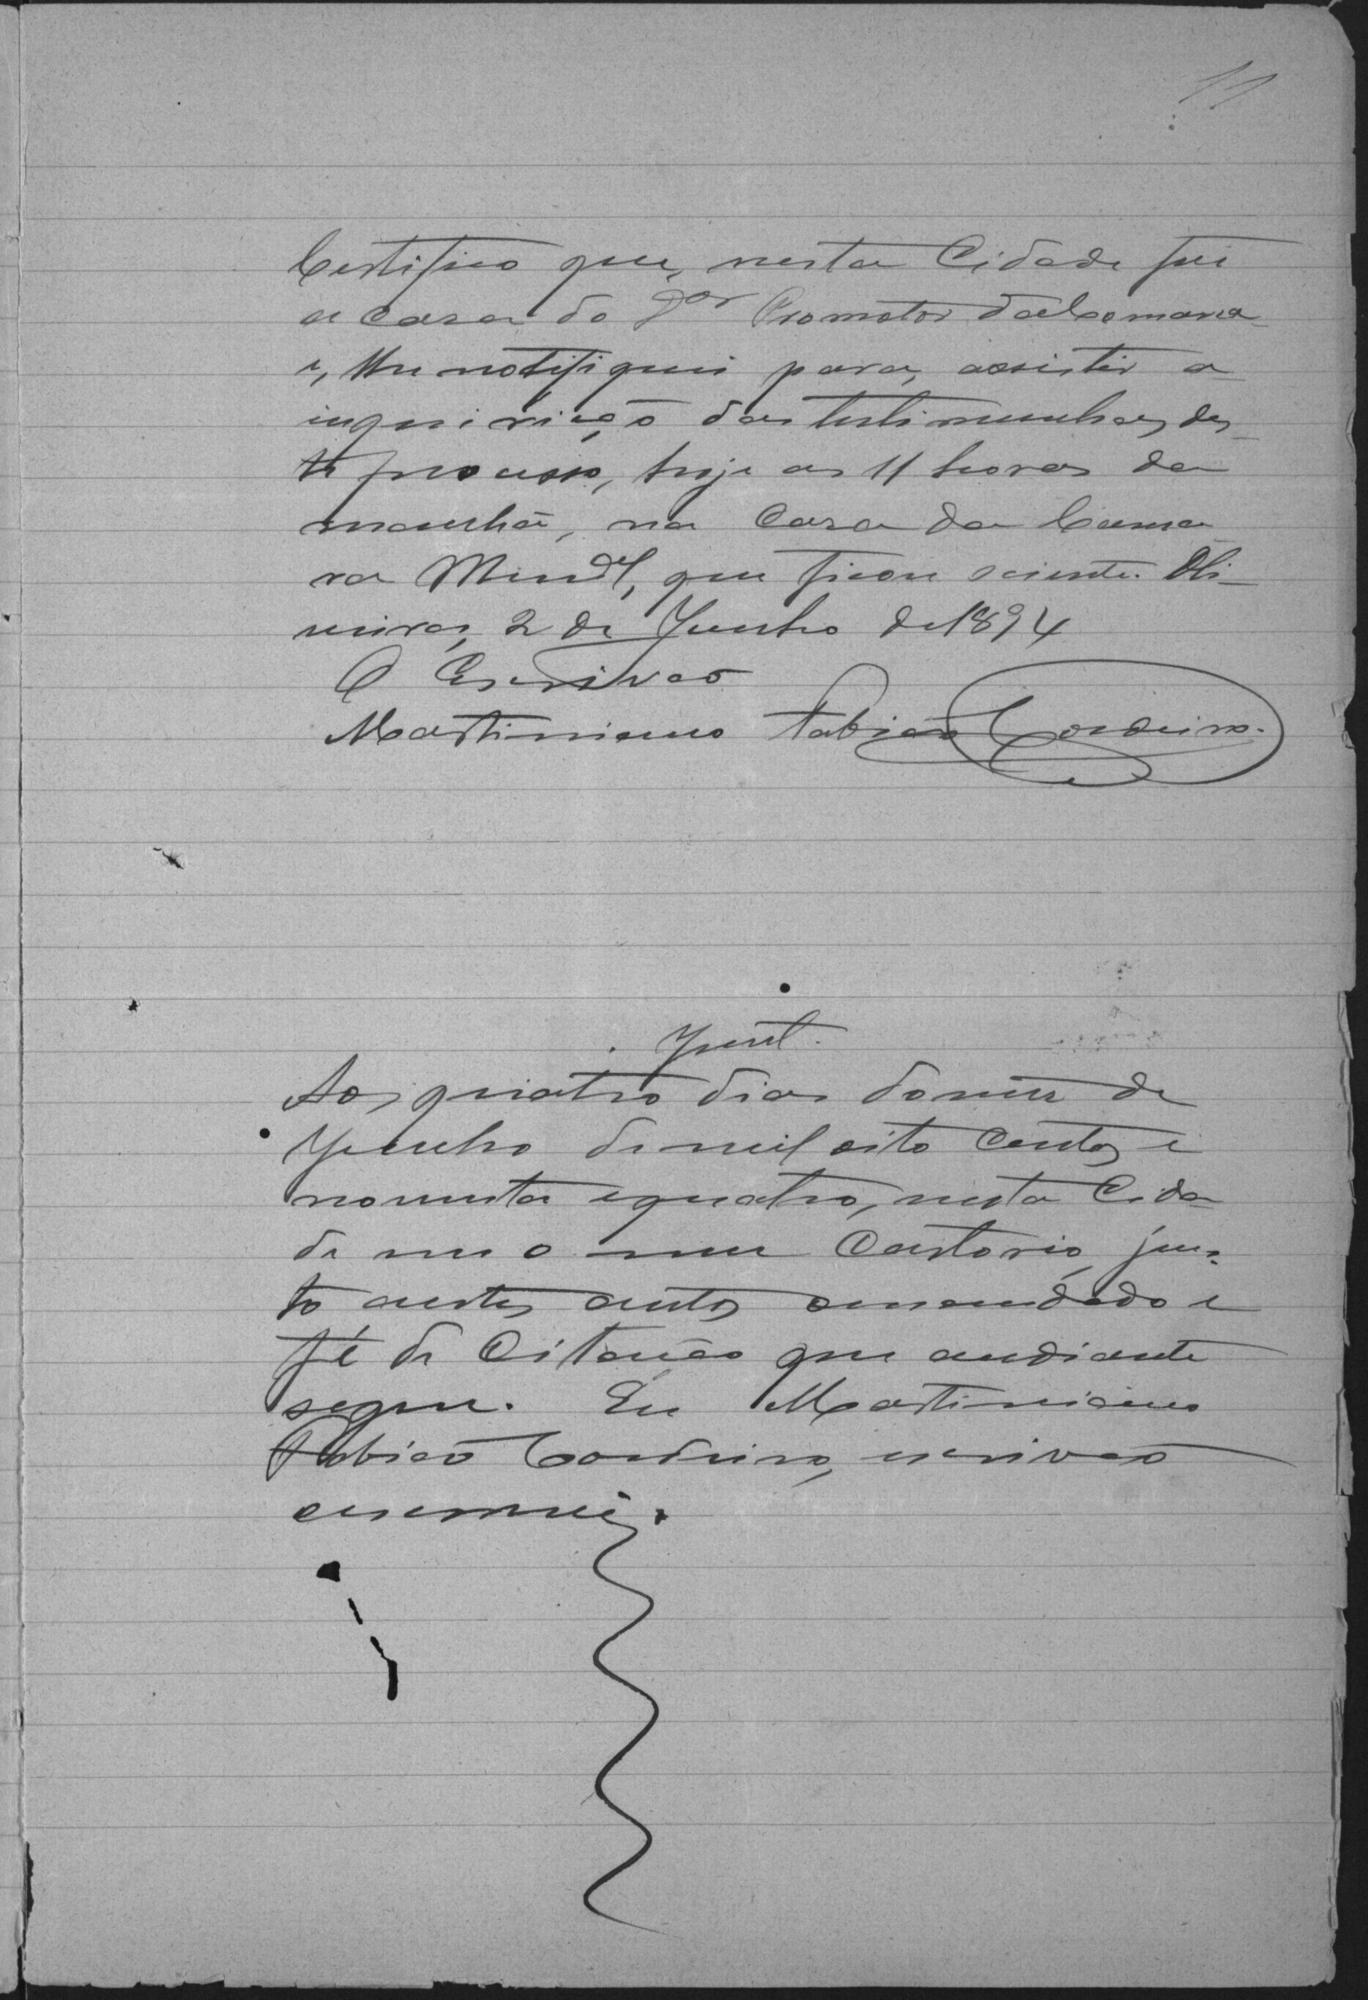 11
Certifico que, nesta Cidade fui
a casa do Dor Promotor da Comarca
e, lhe notifiquei para, assistir a
inquirição das testimunhas, des-
te processo, hoje as 11 horas da
manhã, na Casa da Cama
ra Munal, que ficou sciente. Oli-
veira, 2 de Junho de 1894
O Escrivão
Martiniano Fabião Cordeiro.
Junt.
Aos quatro dias do mez de
Junho de mil oito centos e
noventa e quatro, nesta Cida-
de em o meu Cartorio, jun-
to a estes autos o mandado e
fé de Citação que andiante
segue. Eu Martiniano
Fabião Cordeiro, escrivão
escrevi.